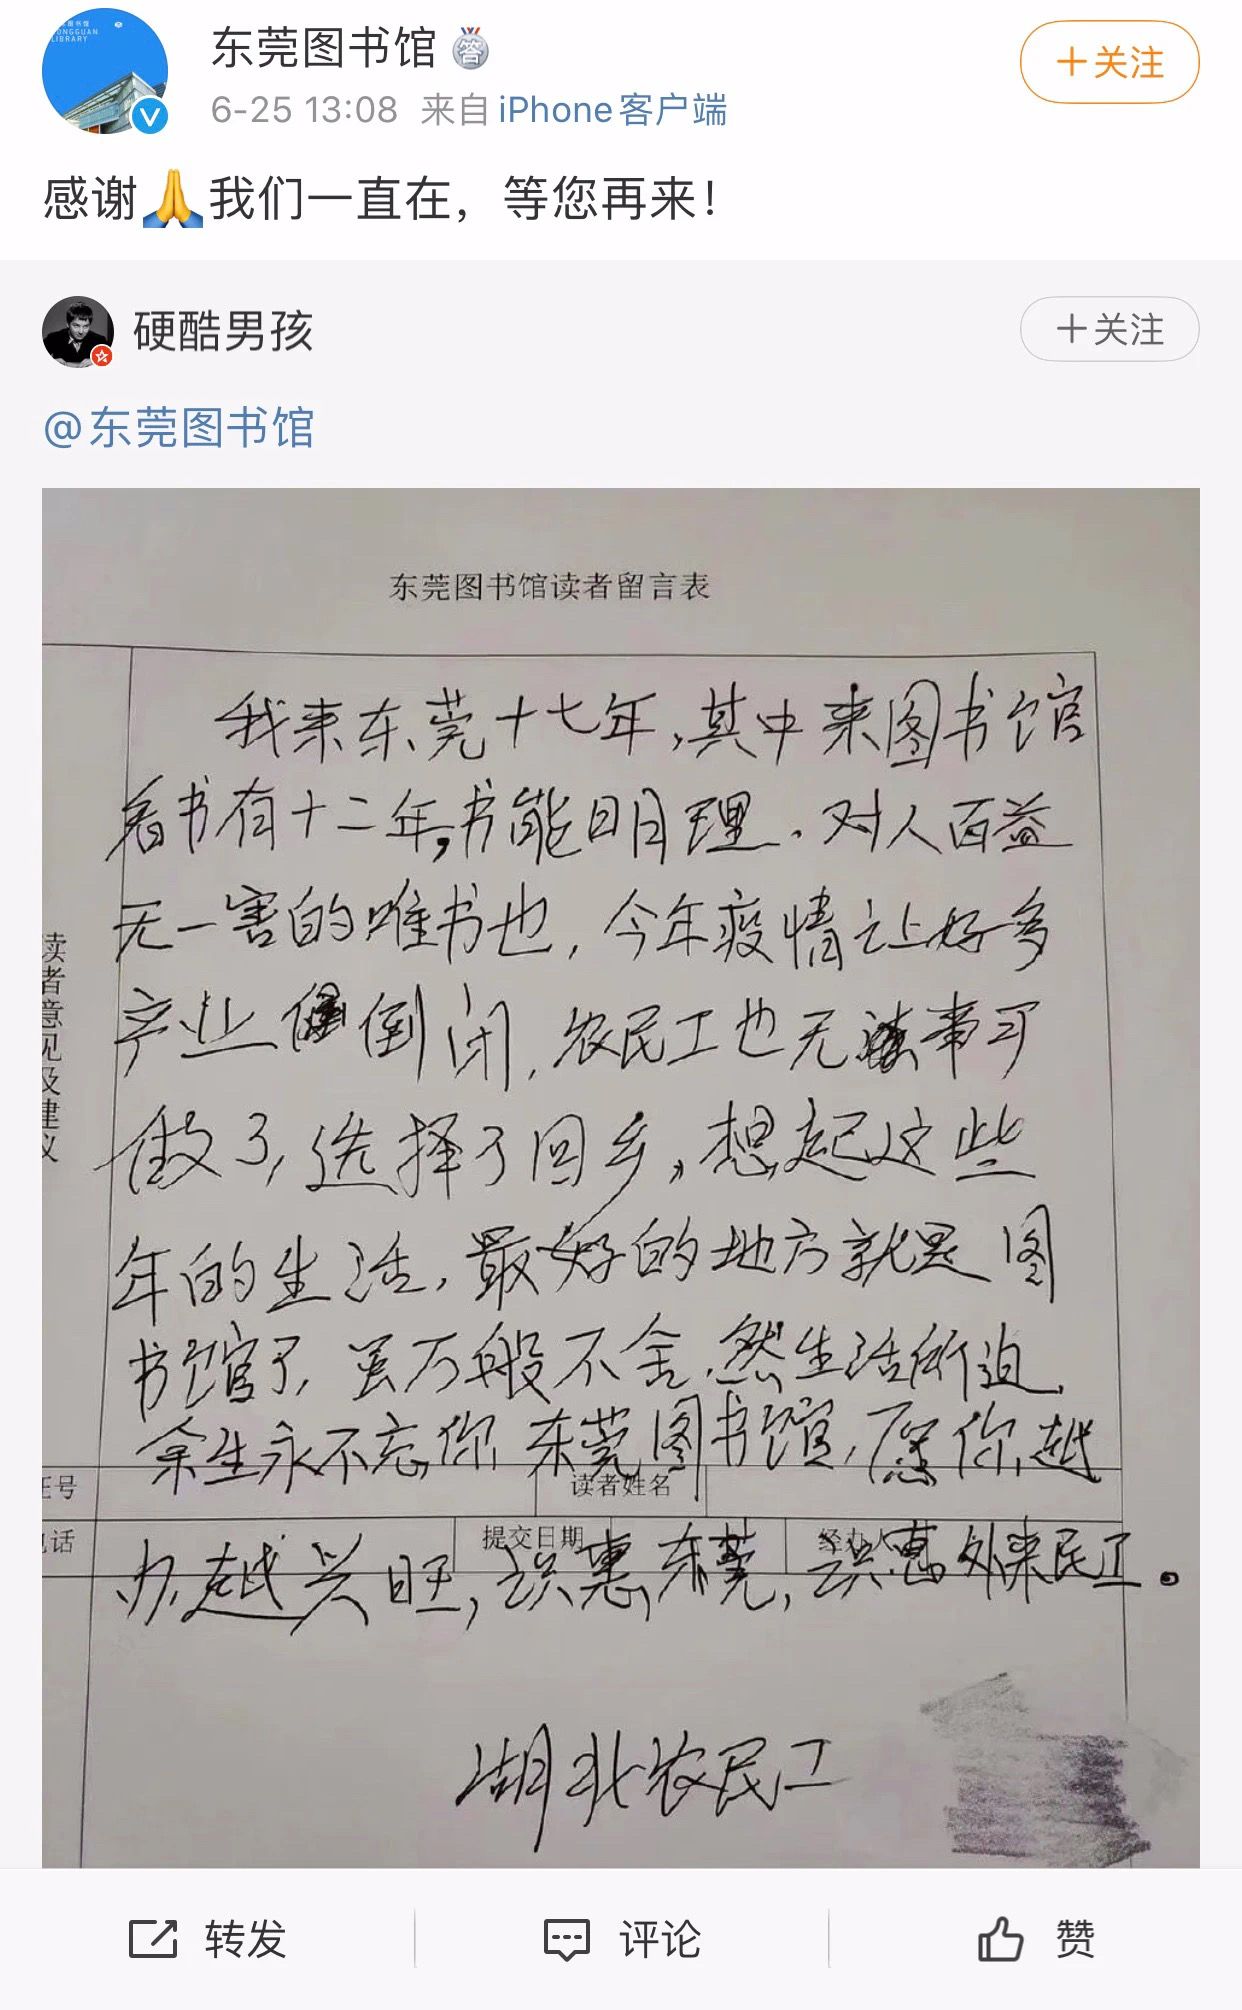 东莞图书馆
6-25 13:08 来自 iPhone客户端
+关注
感谢🙏我们一直在，等您再来！
硬酷男孩
+关注
@东莞图书馆
东莞图书馆读者留言表
读者意见及建议
我来东莞十七年,其中来图书馆
看书有十二年,书能明理、对人百益
无一害的唯书也,今年疫情让好多
产业倒闭,农民工也无事可
做了,选择了回乡,想起这些
年的生活,最好的地方就是图
书馆了,虽万般不舍,然生活所迫,
余生永不忘你,东莞图书馆,愿你越
证号
读者姓名
电话
提交日期
经办人
办越兴旺,识惠东莞,识惠外来民工。
湖北农民工
转发
评论
赞